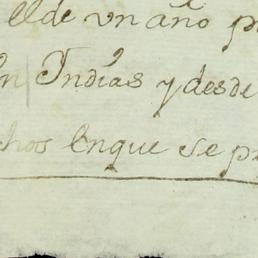 el de vn año p
en Indias y desde
chos En que se p